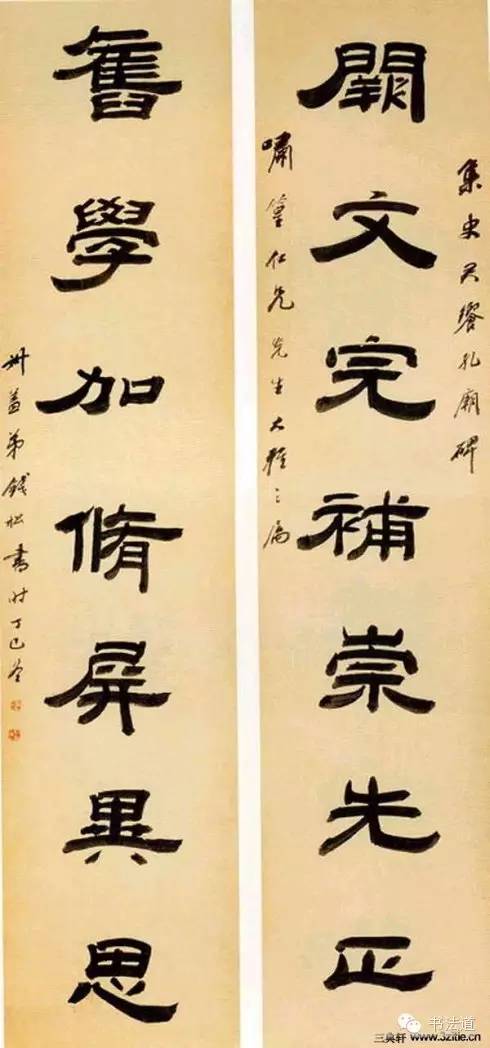 集史君饗孔廟碑
闕文完補崇先正
嘯篁仁兄先生大雅之属
舊學加脩屏異思
叔蓋弟錢松書时丁巳冬
书法道
www.3zitie.cn